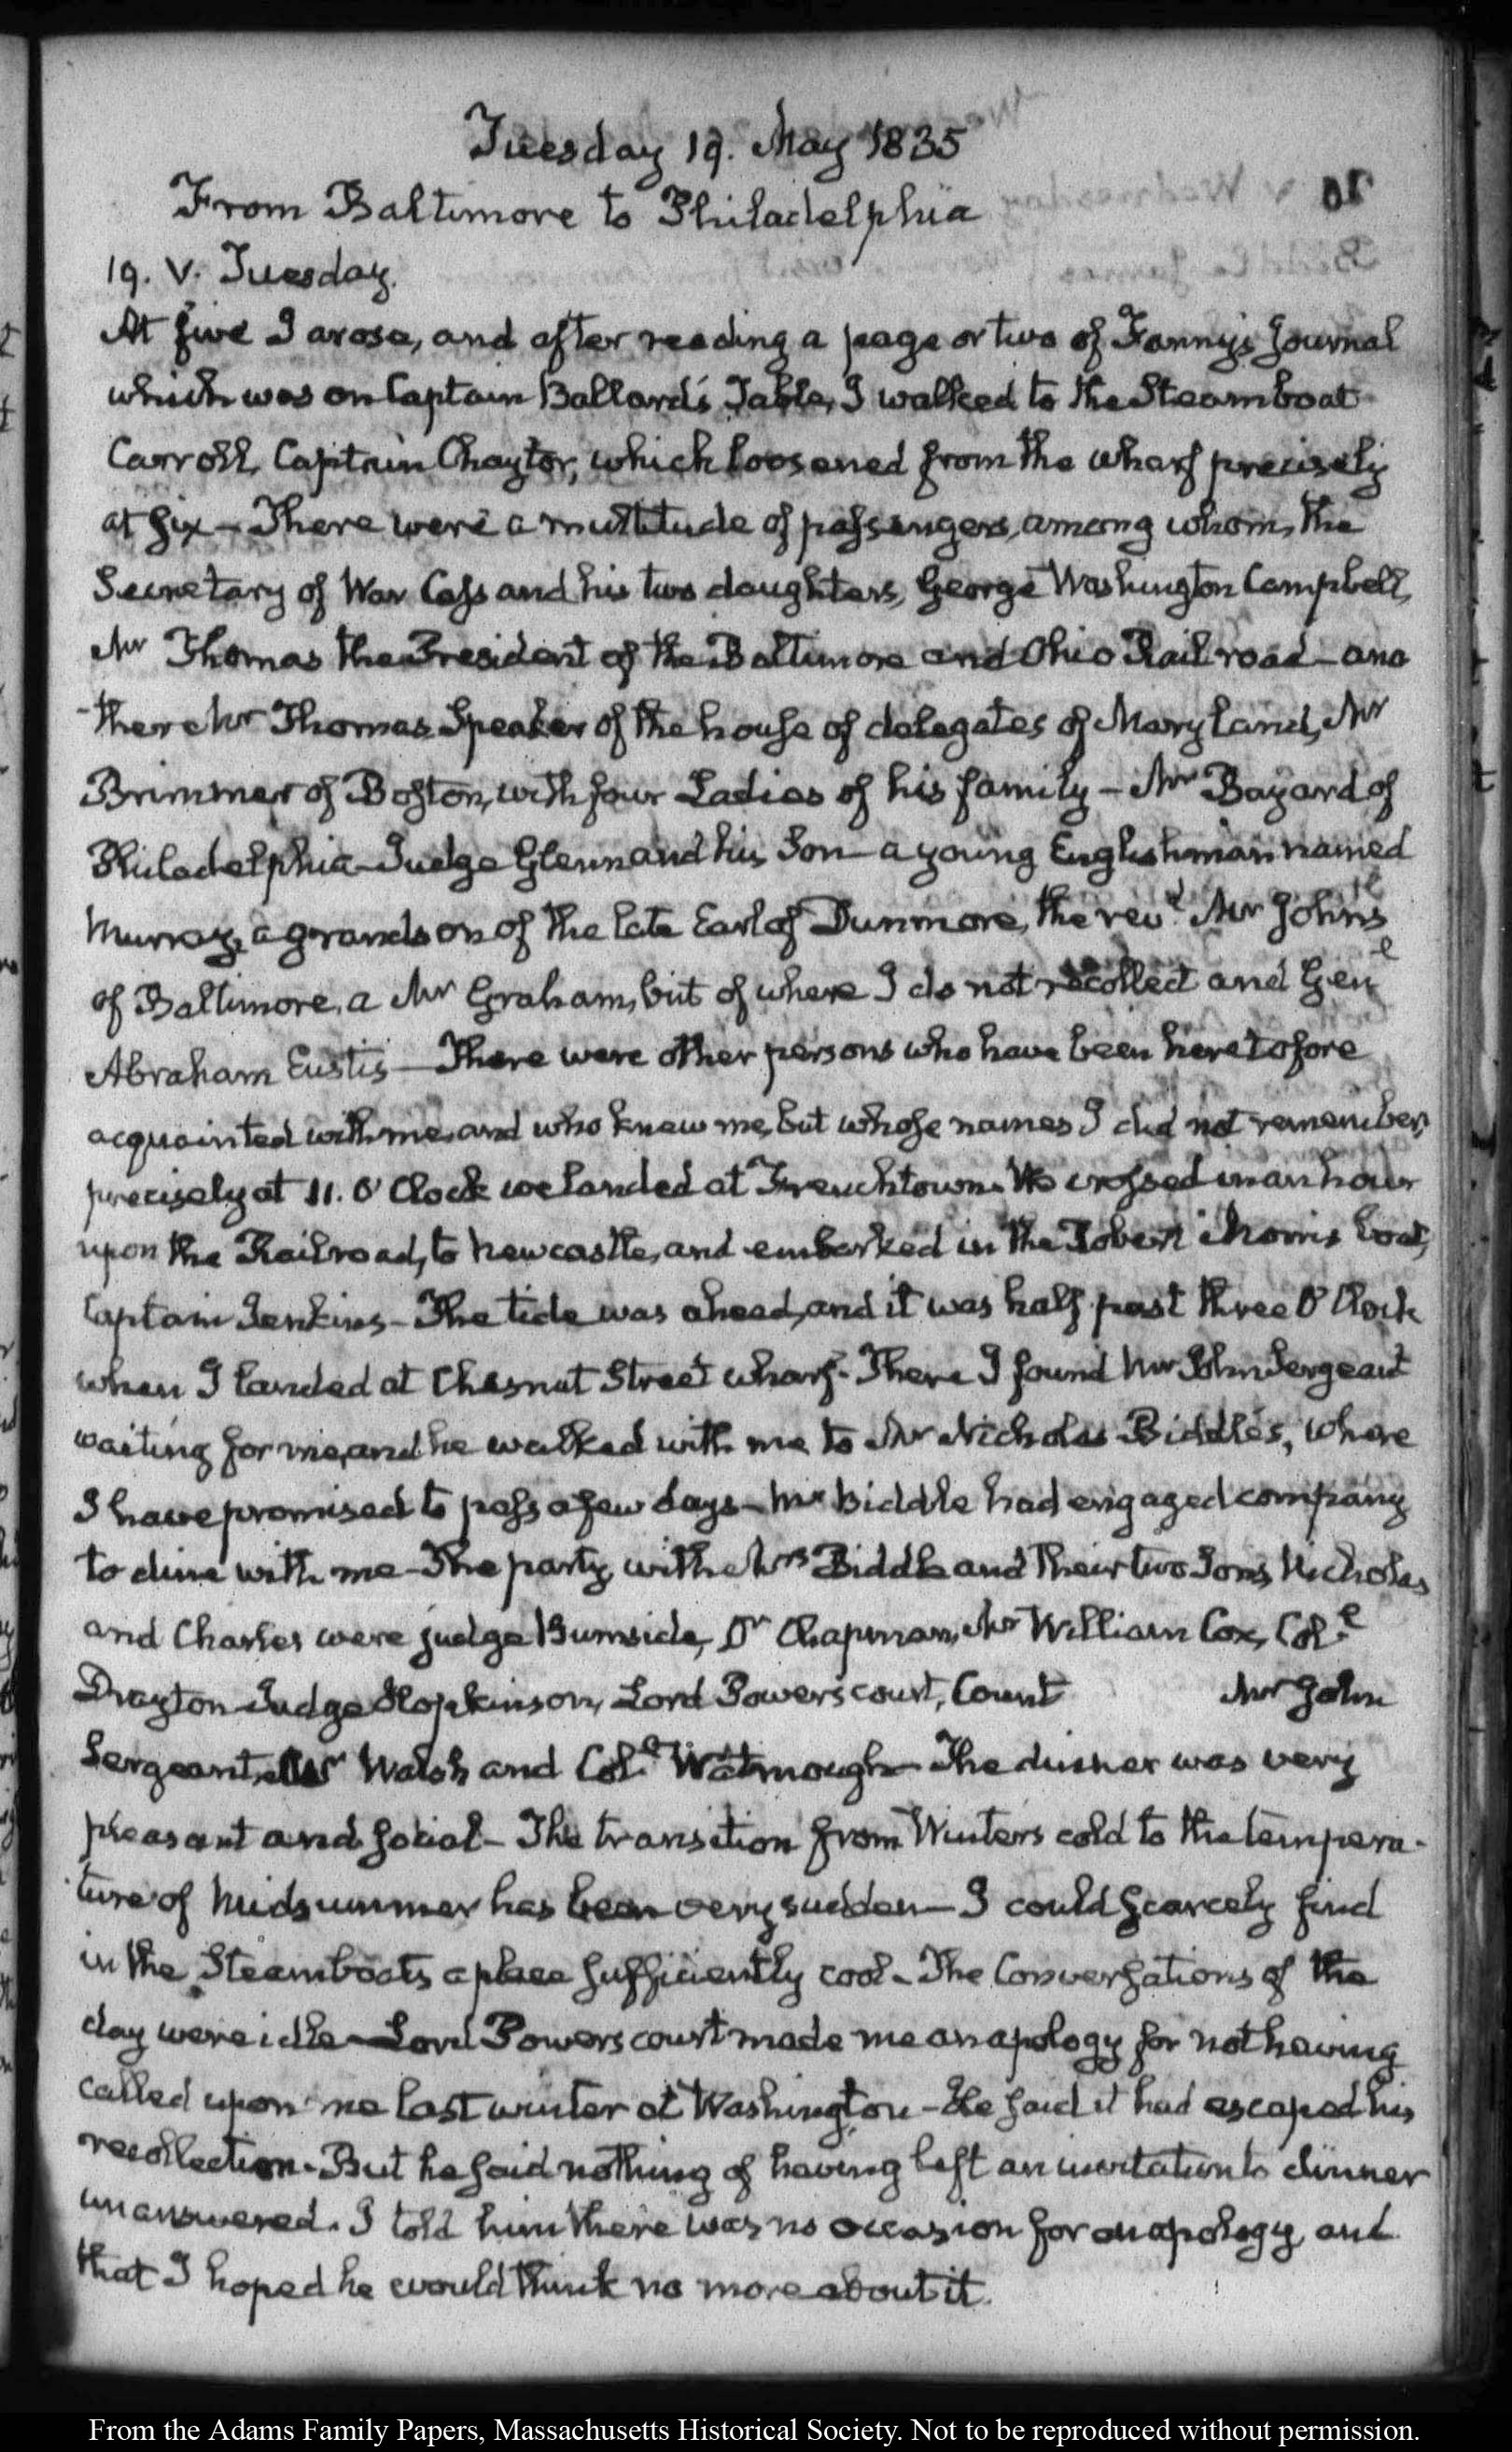 Tuesday 19. May 1835
From Baltimore to Philadelphia
19. V. Tuesday.
At five I arose, and after reading a page or two of Fanny's Journal
which was on Captain Ballard's Table, I walked to the Steamboat
Carroll, Captain Chaytor, which loosened from the wharf precisely
at six — There were a multitude of passengers, among whom, the
Secretary of War Cass and his two daughters, George Washington Campbell,
Mr Thomas the President of the Baltimore and Ohio Rail road — ano
-ther Mr Thomas Speaker of the house of delegates of Maryland, Mr
Brimmer of Boston, with four Ladies of his family — Mr Bayard of
Philadelphia — Judge Glenn and his Son — a young Englishman named
Murray, a grandson of the late Earl of Dunmore, the revd. Mr Johns
of Baltimore, a Mr Graham, but of where I do not recollect and Genl
Abraham Eustis — There were other persons who have been heretofore
acquainted with me, and who knew me, but whose names I did not remember,
precisely at 11. O'Clock we landed at Frenchtown. We crossed in an hour
upon the Railroad, to Newcastle, and embarked in the Robert Morris boat,
Captain Jenkins — The tide was ahead, and it was half past three O'Clock
when I landed at Chesnut Street wharf. There I found Mr John Sergeant
waiting for me, and he walked with me to Mr Nicholas Biddle's, where
I have promised to pass a few days — Mr Biddle had engaged company
to dine with me — The party, with Mrs Biddle and their two Sons, Nicholas
and Charles were judge Burnside, Dr Chapman, Mr William Cox, Coll.
Drayton Judge Hopkinson, Lord Powerscourt, Count Mr John
Sergeant, Mr Walsh and Coll. Watmough — The dinner was very
pleasant and social — The transition from Winters cold to the tempera-
ture of Midsummer has been very sudden — I could scarcely find
in the Steamboats a place sufficiently cool — The Conversations of the
day were idle — Lord Powerscourt made me an apology for not having
called upon me last winter at Washington — He said it had escaped his
recollection. But he said nothing of having left an invitation to dinner
unanswered. I told him there was no occasion for an apology, and
that I hoped he would think no more about it.
From the Adams Family Papers, Massachusetts Historical Society. Not to be reproduced without permission.